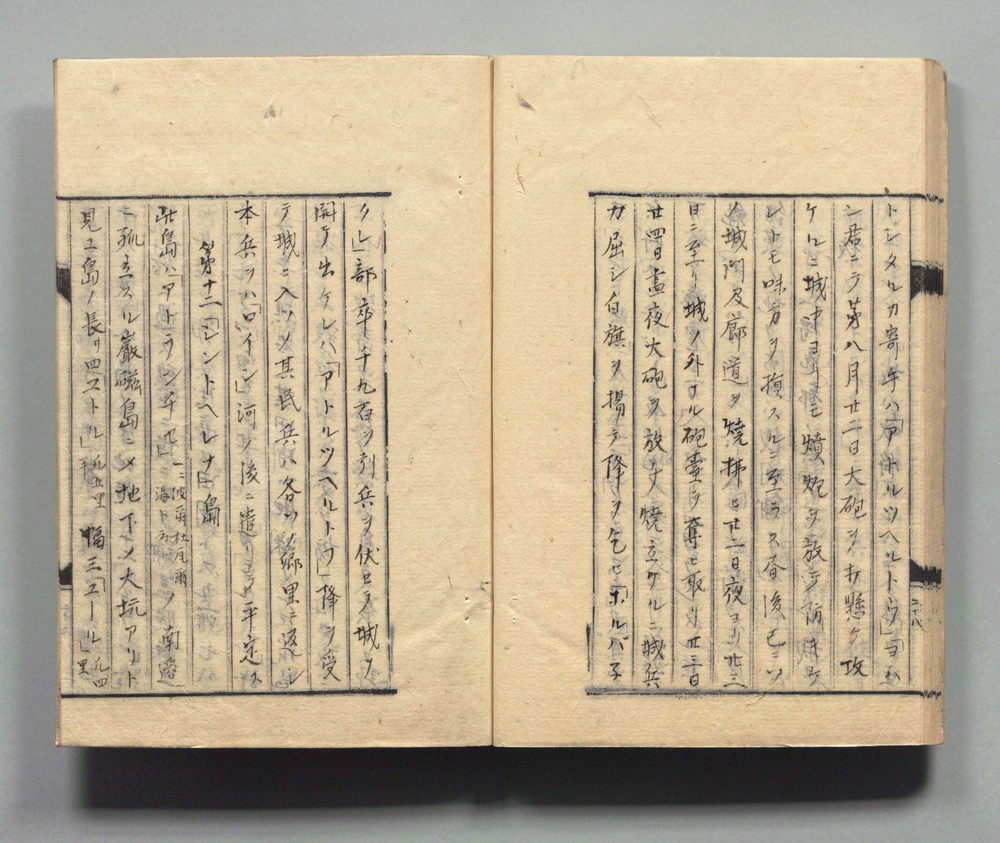 トシタルカ寄手ハ「アトルツヘルトウ」ヨハ
ン君ニテ第八月廿二日大砲ヲ打懸ケ攻
ケルニ城中ヨリモ熕炮ヲ放テ防キケ
レトモ味方ヲ損スルニ至ラス昏後ヨリ
城門及廊道ヲ焼拂ヒ廿二日夜ヨリ廿三
日ニ至リ城ノ外ナル砲臺ヲ奪ヒ取リ廿三日
廿四日晝夜大砲ヲ放チ焼立ケルニ城兵
力屈シ白旗ヲ揚テ降ヲ乞ヒ「ホルバ子
クレ」部卒一千九百ヲ引兵ヲ伏セテ城ヲ
開テ出ケレハ「アトルツヘルトウ」降ヲ受
テ城ニ入ツメ其民兵ハ各ソノ郷里ニ返シ
本兵ヲハ「ロイン」河ノ後ニ遣リ
平定ス
第十二「シントヘレナ」島
此島ハ「アトランチセ」
海
ノ南邊
ニ孤立スル巖磁島ニメ地下メ大坑アリト
見ユ島ノ長サ四ストル」
九五里
幅三「ユール」
九四
里
二十八